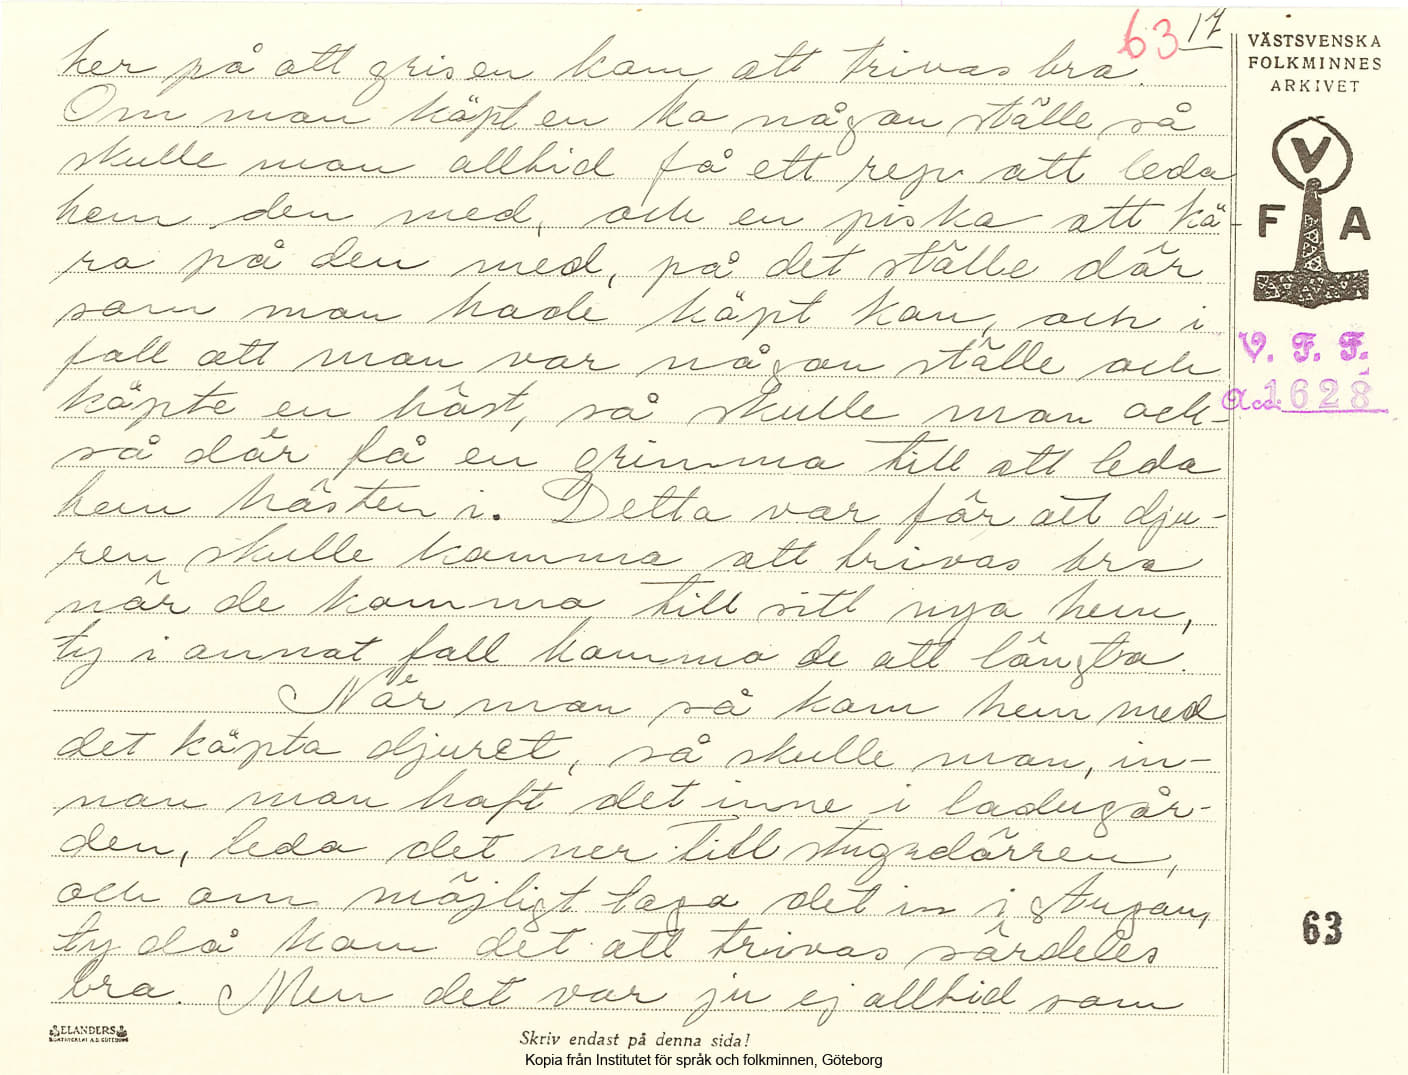 63 17
ker på att grisen kom att trivas bra.
Om man köpt en ko någon ställe så
skulle man alltid få ett rep att leda
hem den med, och en piska att kö-
ra på den med, på det ställe där
som man hade köpt kon, och i
fall att man var någon ställe och
köpte en häst, så skulle man ock-
så där få en grimma till att leda
hem hästen i. Detta var för att dju-
ren skulle komma att trivas bra
när de komma till sitt nya hem,
ty i annat fall komma de att längta.
När man så kom hem med
det köpta djuret, så skulle man, in-
nan man haft det inne i ladugår-
den, leda det ner till stugudörren,
och om möjligt taga det in i stugan,
ty då kom det att trivas särdeles
bra. Men det var ju ej alltid som
VÄSTSVENSKA
FOLKMINNES
ARKIVET
V
F A
V. F. F.
Acc. 1628
63
ELANDERS
BOKTRYCKERI A.B. GÖTEBORG
Skriv endast på denna sida!
Kopia från Institutet för språk och folkminnen, Göteborg